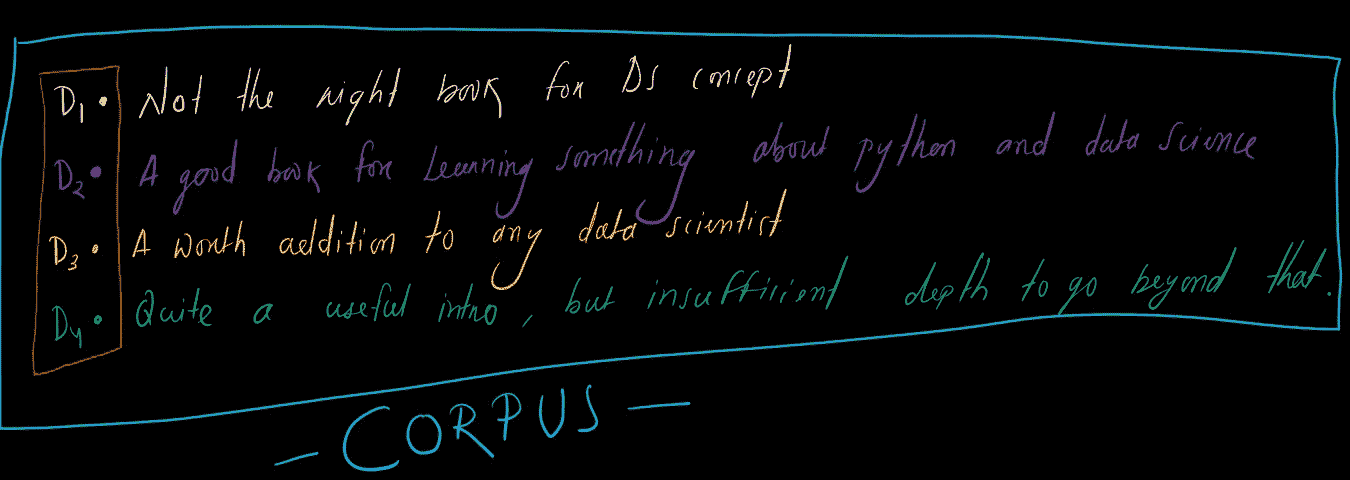 D1• Not the right book for DS concept
D2• A good book for Learning something about python and data science
D3• A worth addition to any data scientist
D4• Quite a useful intro, but insufficient depth to go beyond that.
— CORPUS —